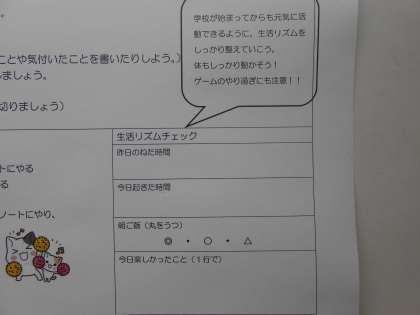 学校が始まってからも元気に活
動できるように、生活リズムを
しっかり整えていこう。
体もしっかり動かそう！
ゲームのやり過ぎにも注意！！
ことや気付いたことを書いたりしよう。）
しましょう。
切りましょう）
生活リズムチェック
昨日のねた時間
今日起きた時間
朝ご飯（丸をうつ）
◎ ・ ○ ・ △
今日楽しかったこと（１行で）
トにやる
る
ノートにやり、